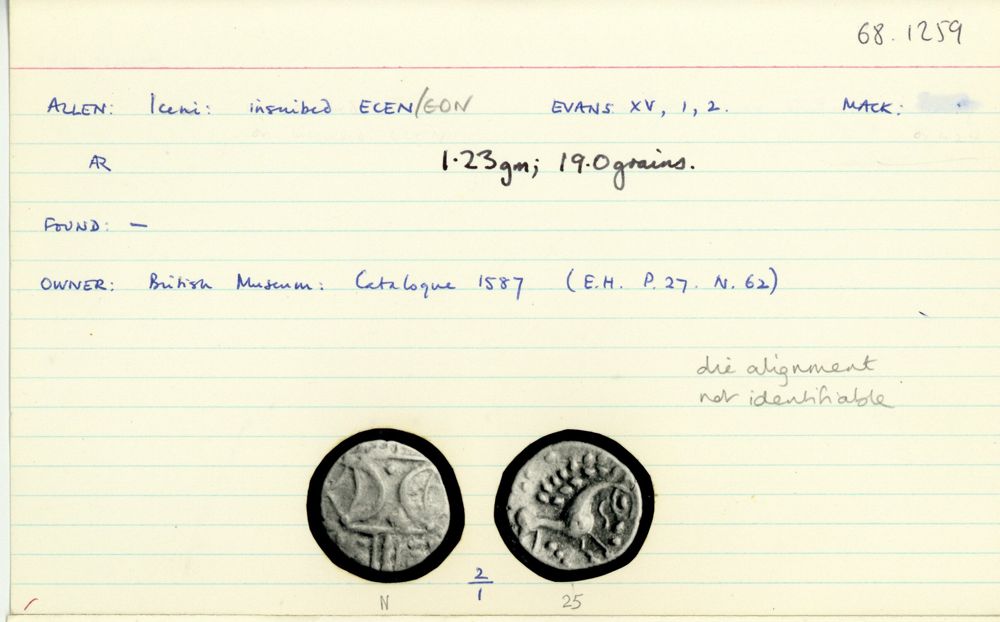 68.1259
ALLEN: Iceni: inscribed ECEN/EON EVANS XV, 1, 2. MACK:
AR 1.23gm; 19.0grains.
FOUND: —
OWNER: British Museum: Catalogue 1587 (E.H. P.27. N.62)
die alignment
not identifiable
2/1
N 25